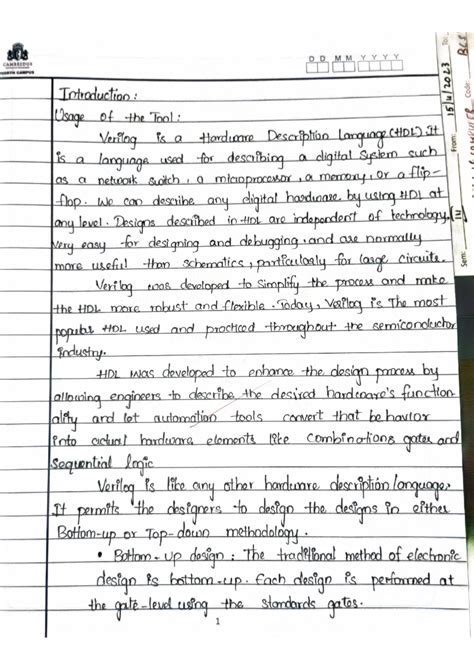 CAMBRIDGE
NORTH CAMPUS
D D M M Y Y Y Y
Introduction :
Usage of the Tool :
Verilog is a Hardware Description Language (HDL). It
is a language used for describing a digital system such
as a network switch, a microprocessor, a memory, or a flip-
flop. We can describe any digital hardware by using HDL at
any level. Designs described in HDL are independent of technology,
very easy for designing and debugging, and are normally
more useful than schematics, particularly for large circuits.
Verilog was developed to simplify the process and make
the HDL more robust and flexible. Today, Verilog is the most
popular HDL used and practiced throughout the semiconductor
industry.
HDL was developed to enhance the design process by
allowing engineers to describe the desired hardware's function
ality and let automation tools convert that behavior
into actual hardware elements like combinational gates and
Sequential logic
Verilog is like any other hardware description language,
It permits the designers to design the designs in either
Bottom-up or Top-down methodology.
• Bottom-up design : The traditional method of electronic
design is bottom-up. Each design is performed at
the gate-level using the standards gates.
1
15/11/2023
From:
Sem:
Code:
BCS